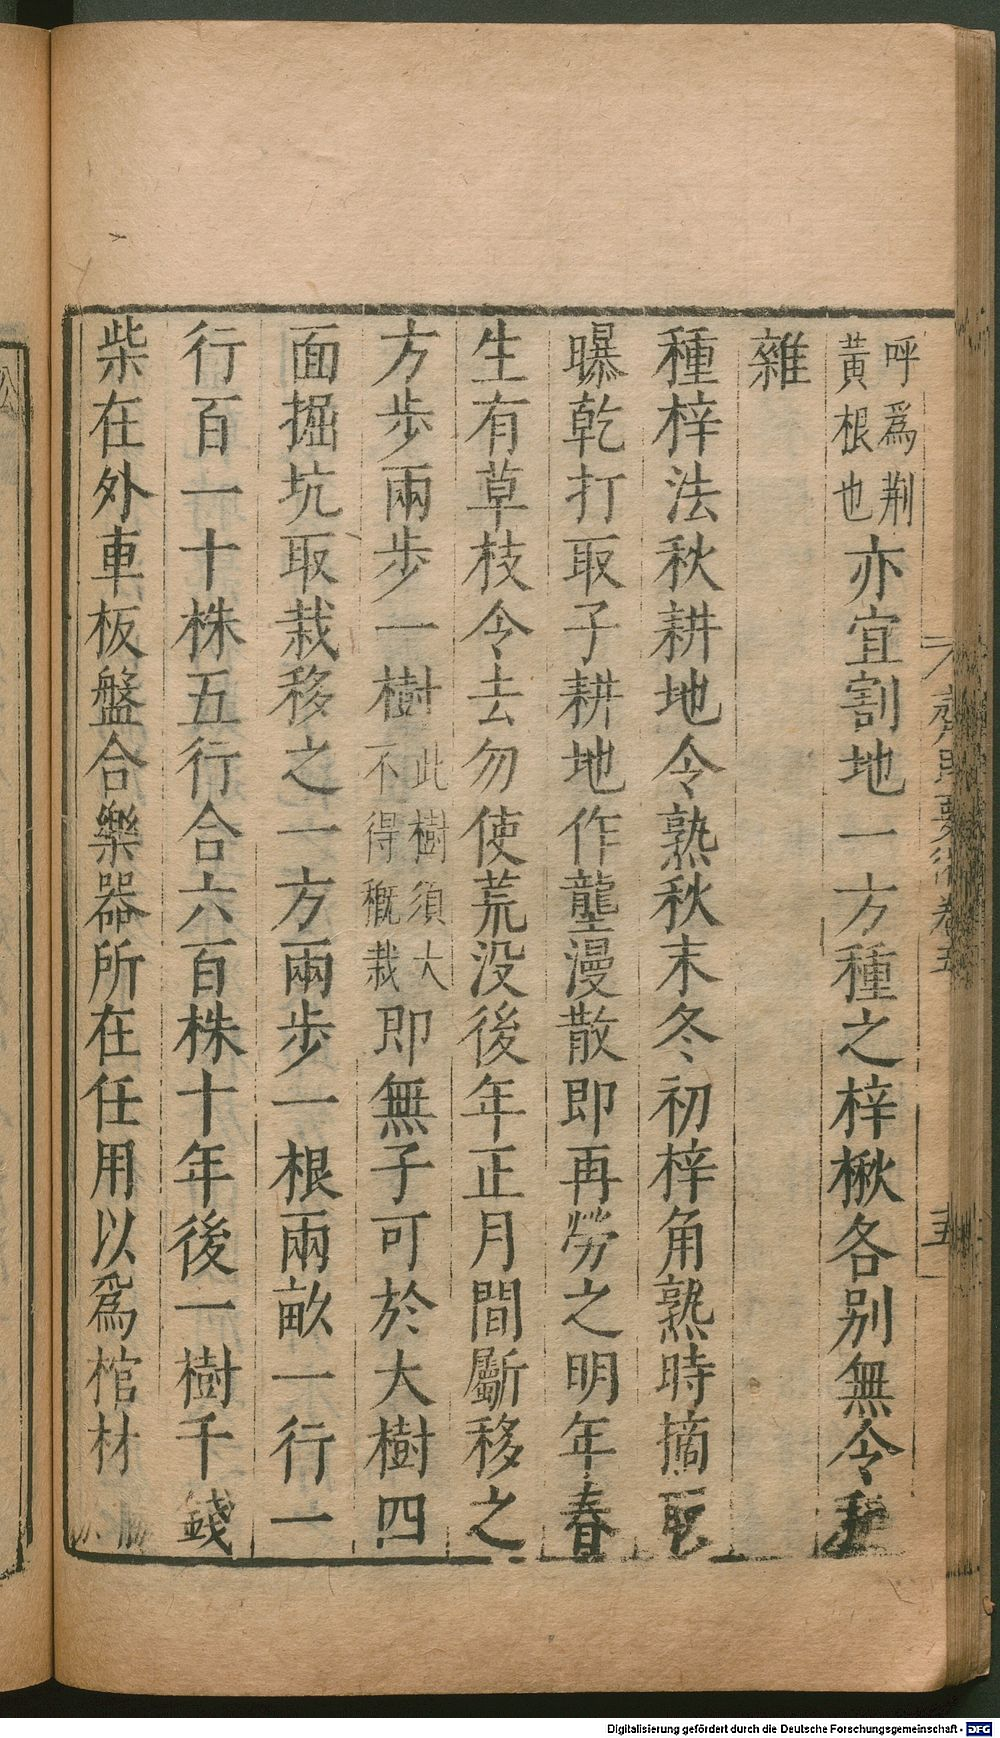 呼爲荆
黃根也亦宜割地一方種之梓楸各別無令
雜
種梓法秋耕地令熟秋末冬初梓角熟時摘取
曝乾打取子耕地作壟漫散即再勞之明年春
生有草枝令去勿使荒没後年正月間斸移之
方步兩步一樹此樹須大
不得穊栽即無子可於大樹四
面掘坑取栽移之一方兩步一根兩畝一行一
行百一十株五行合六百株十年後一樹千錢
柴在外車板盤合樂器所在任用以爲棺材
齊民要術卷五
五
Digitalisierung gefördert durch die Deutsche Forschungsgemeinschaft - DFG